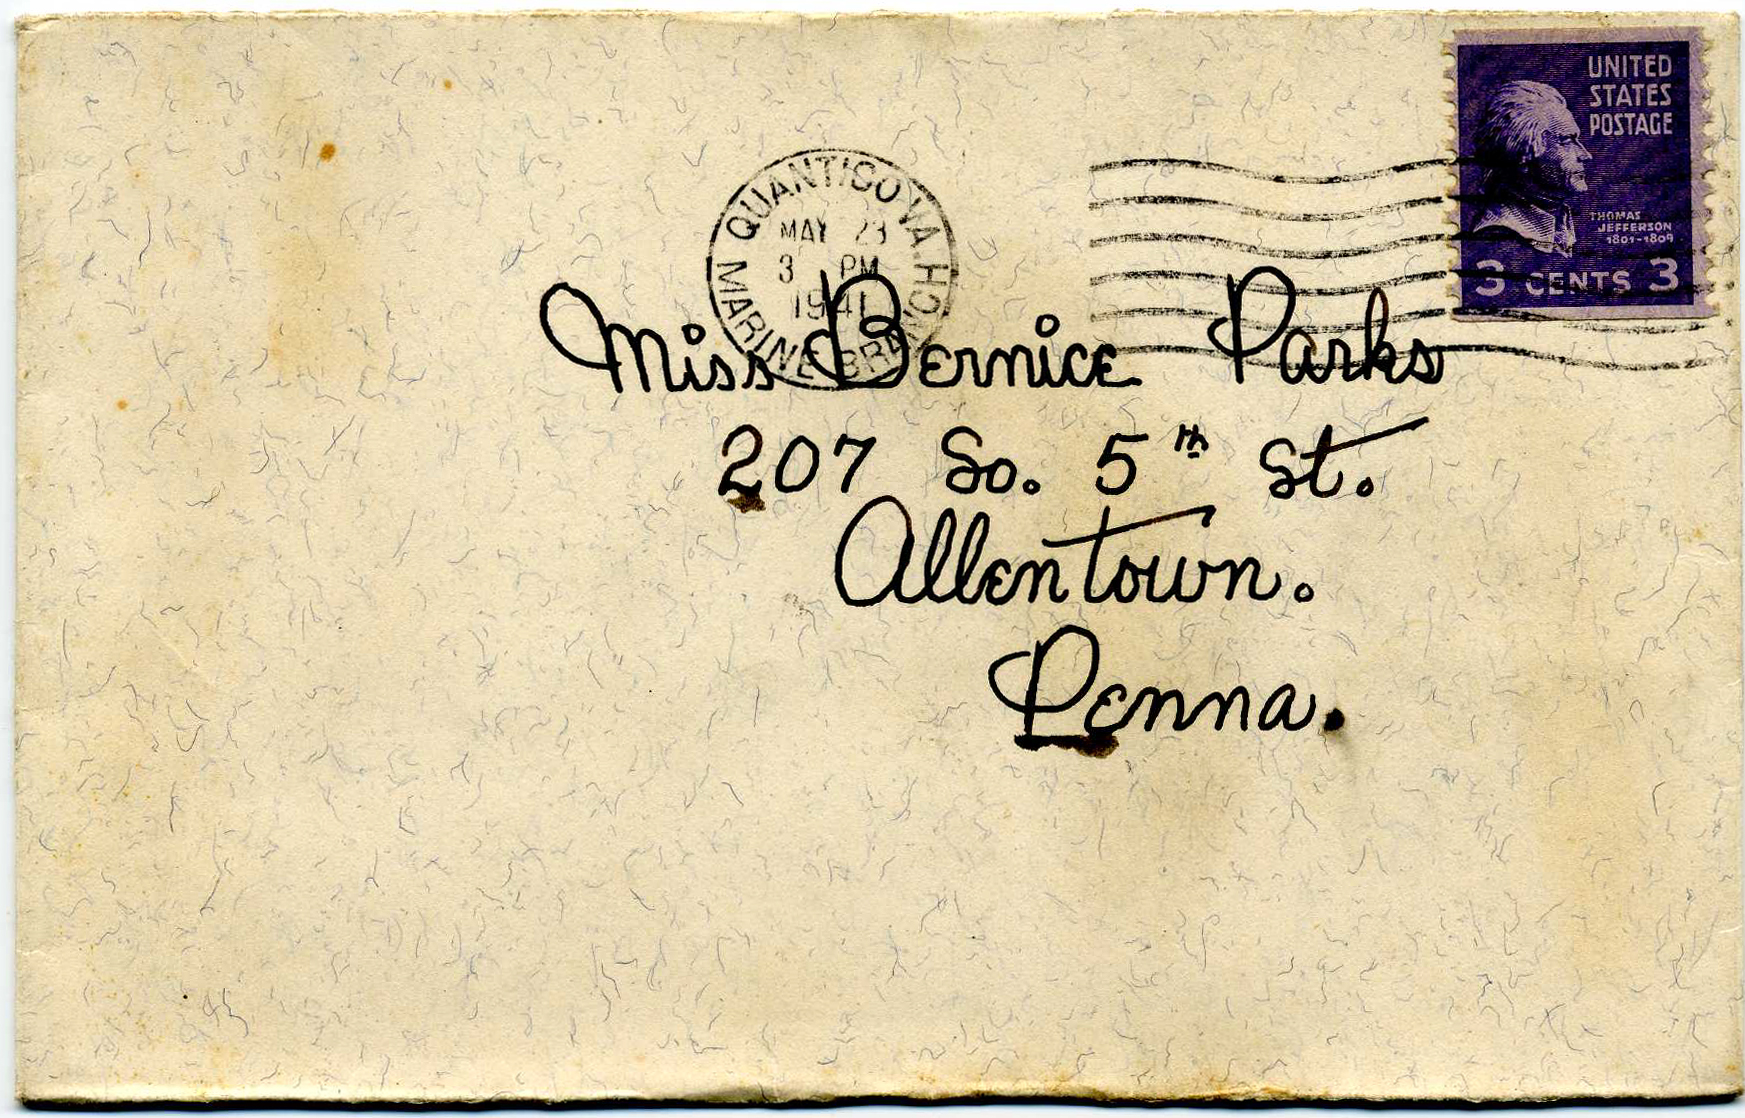 UNITED
STATES
POSTAGE
THOMAS
JEFFERSON
1801-1809
3 CENTS 3
QUANTICO VA.
MAY 23
3 PM
1941
MARINE BRANCH
Miss Bernice Parks
207 So. 5th St.
Allentown.
Penna.